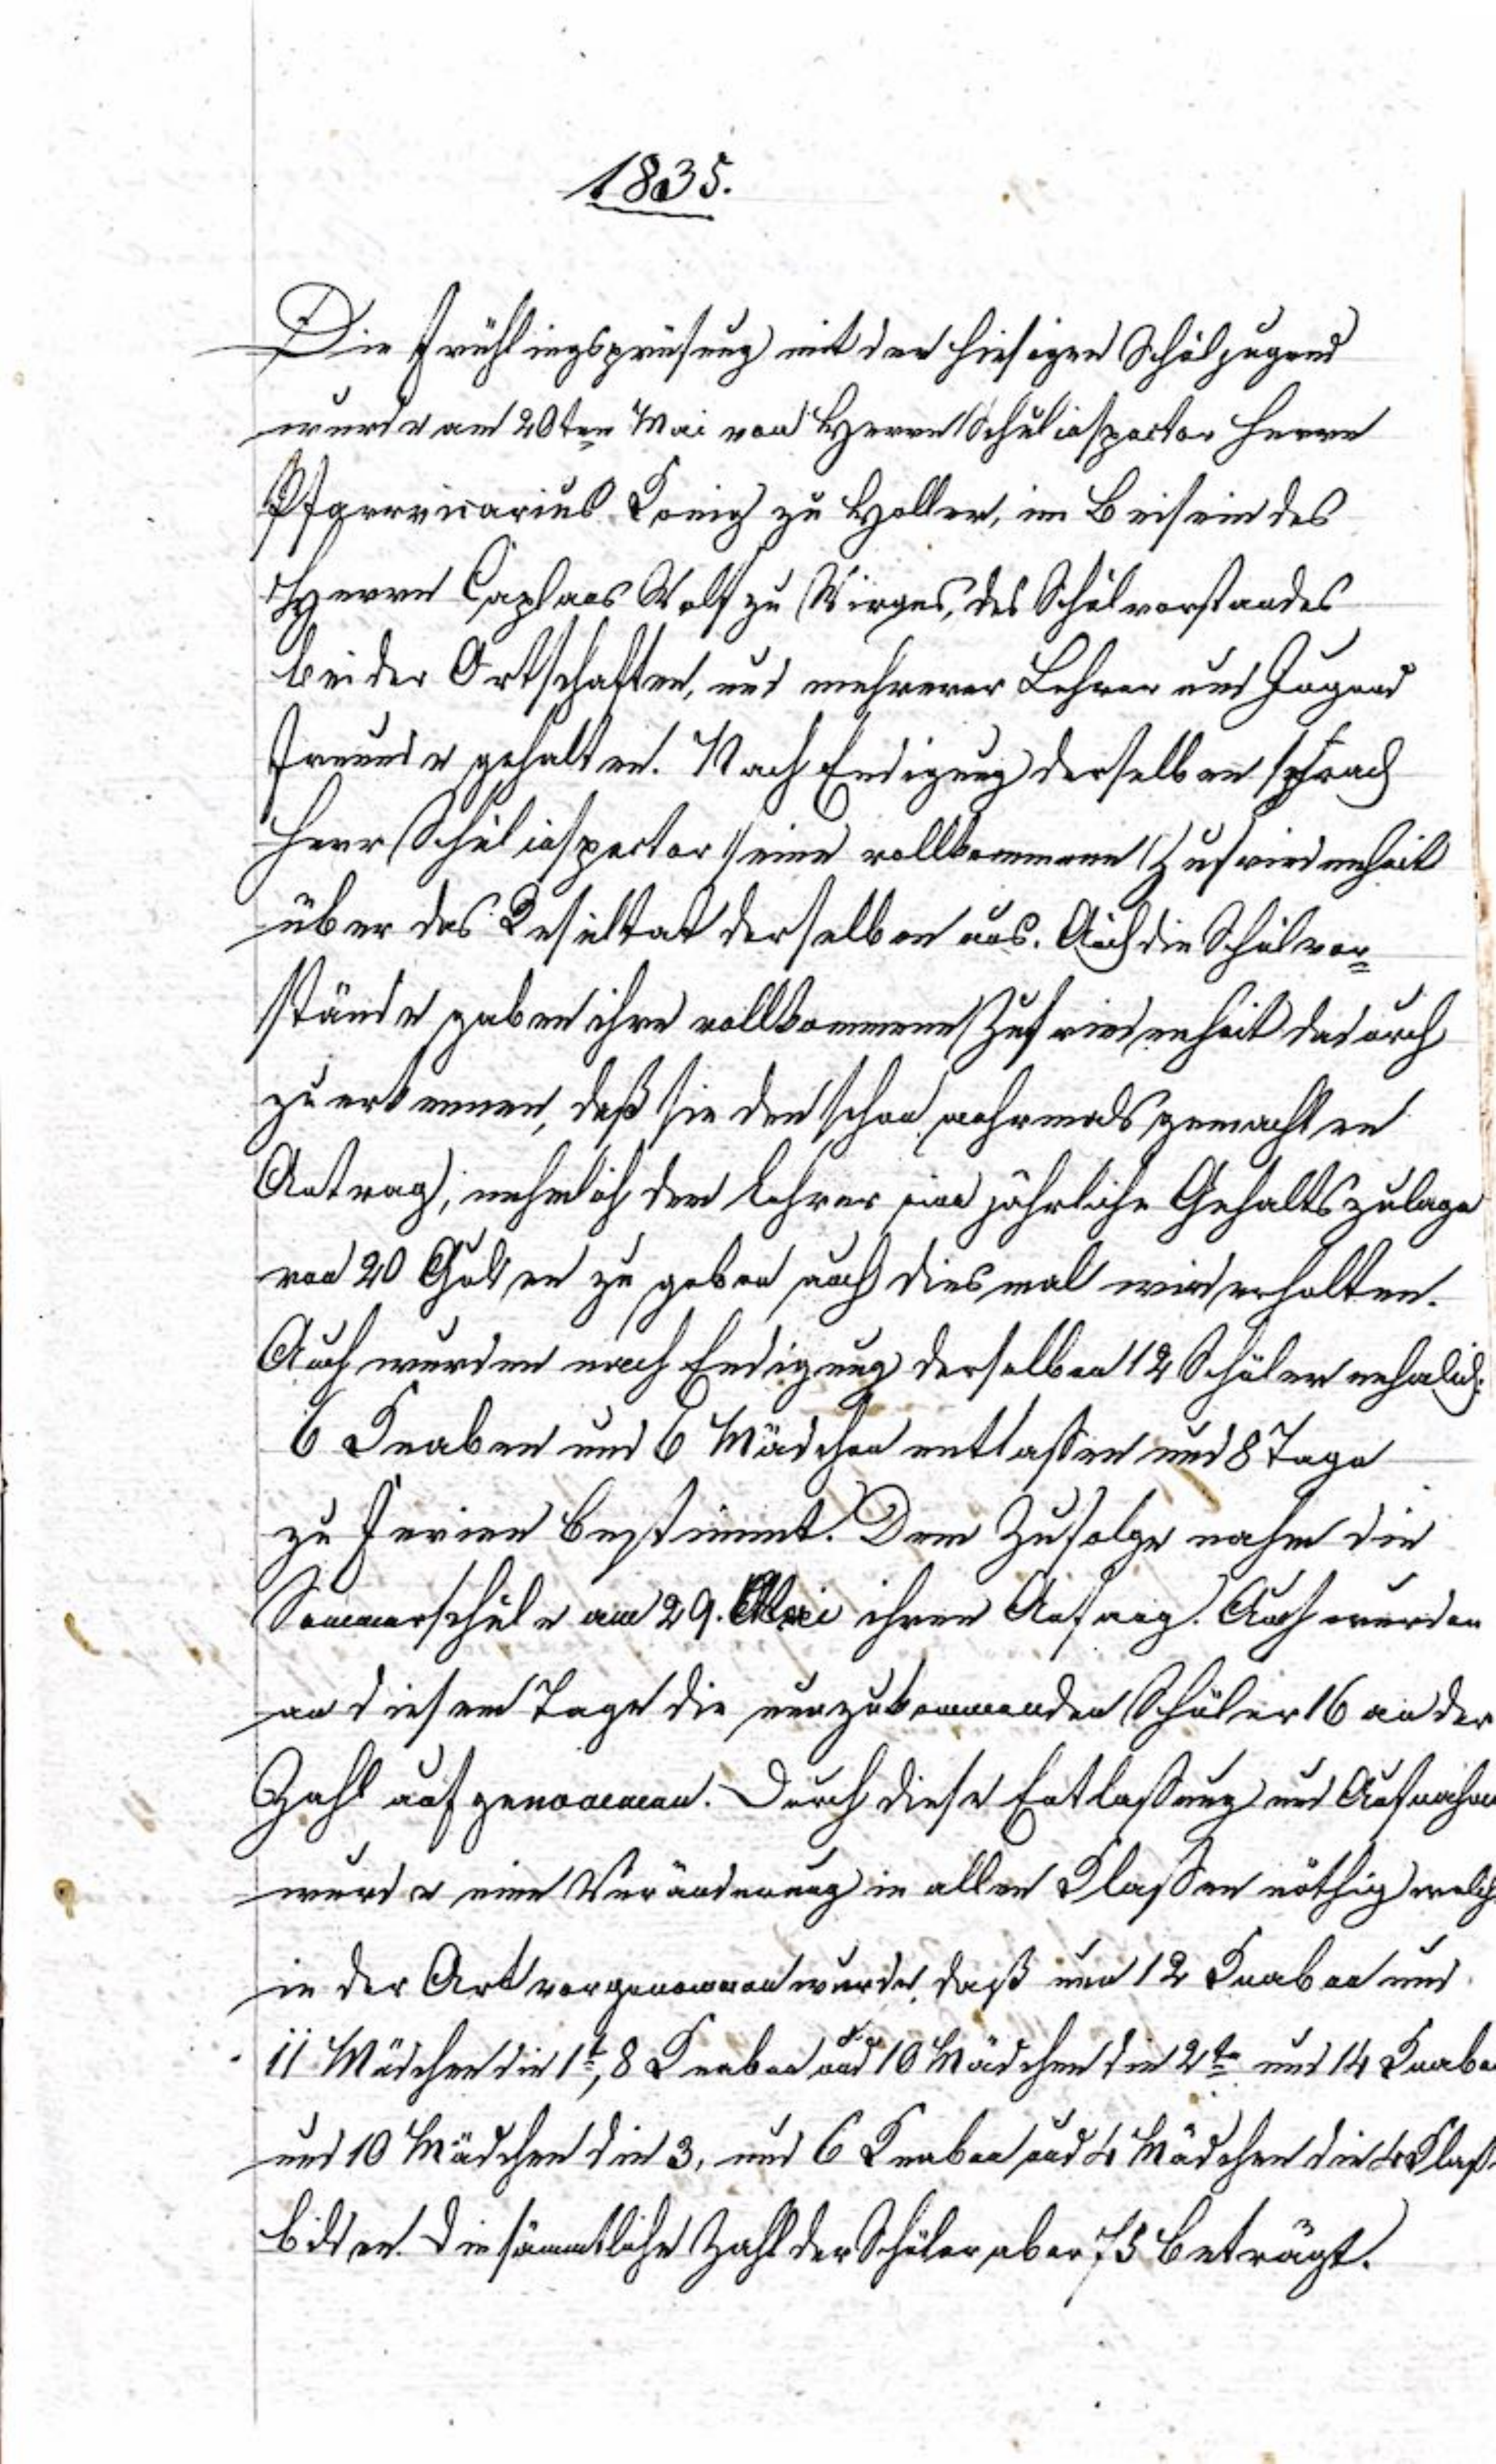 1835.
Die Frühlingsprüfung mit der hiesigen Schuljugend
wurde am 20ten Mai von Herrn Schulinspector Herrn
Pfarrvicarius König zu Holler, im Beisein des
Herrn Caplans Wolf zu Wirges, des Schulvorstandes
beider Ortschaften, und mehrerer Lehrer und Jugend
freunde gehalten. Nach Endigung derselben sprach
Herr Schulinspector seine vollkommene Zufriedenheit
über das Resultat derselben aus. Auch die Schulvor=
stände gaben ihre vollkommene Zufriedenheit dadurch
zu erkennen, daß sie den schon mehrmals gemachten
Antrag, nehmlich dem Lehrer eine jährliche Gehaltszulage
von 20 Gulden zu geben auch diesmal wiederholten.
Auch wurden nach Endigung derselben 12 Schüler nehmlich:
6 Knaben und 6 Mädchen entlassen und 8 Tage
zu Ferien bestimmt. Dem Zufolge nahm die
Sommerschule am 29. Mai ihren Anfang. Auch wurden
an diesem Tage die neuzukommenden Schüler 16 an der
Zahl aufgenommen. Durch diese Entlaßung und Aufnahme
wurde eine Veränderung in allen Klaßen nöthig welche
in der Art vorgenommen wurde, daß nun 12 Knaben und
11 Mädchen die 1t, 8 Knaben und 10 Mädchen die 2te und 14 Knaben
und 10 Mädchen die 3, und 6 Knaben und 4 Mädchen die 4 Klaße
bilden. Die sämmtliche Zahl der Schüler aber 75 beträgt.